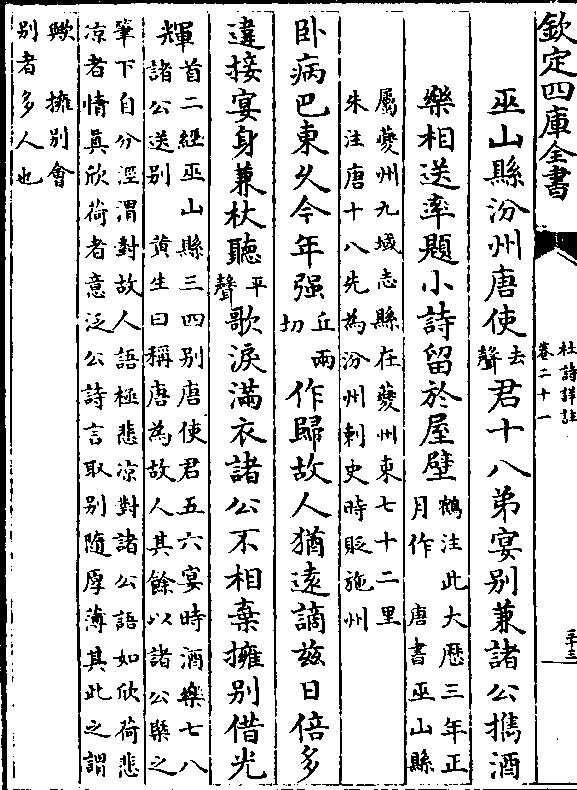 欽定四庫全書
杜詩詳註
卷二十一
巫山縣汾州唐使去聲君十八弟宴别兼諸公攜酒
樂相送率題小詩留於屋壁
鶴注此大厯三年正
月作 唐書巫山縣
屬夔州九域志縣在夔州東七十二里
朱注唐十八先為汾州刺史時貶施州
卧病巴東乆今年强丘兩切作歸故人猶遠謫兹日倍多
違接宴身兼杖聽平聲歌淚滿衣諸公不相棄擁别借光
輝
首二經巫山縣三四别唐使君五六宴時酒樂七八
諸公送别 黄生曰稱唐為故人其餘以諸公槩之
筆下自分涇渭對故人語極悲凉對諸公語如欣荷悲
凉者情真欣荷者意泛公詩言取别隨厚薄其此之謂
歟 擁别會
别者多人也